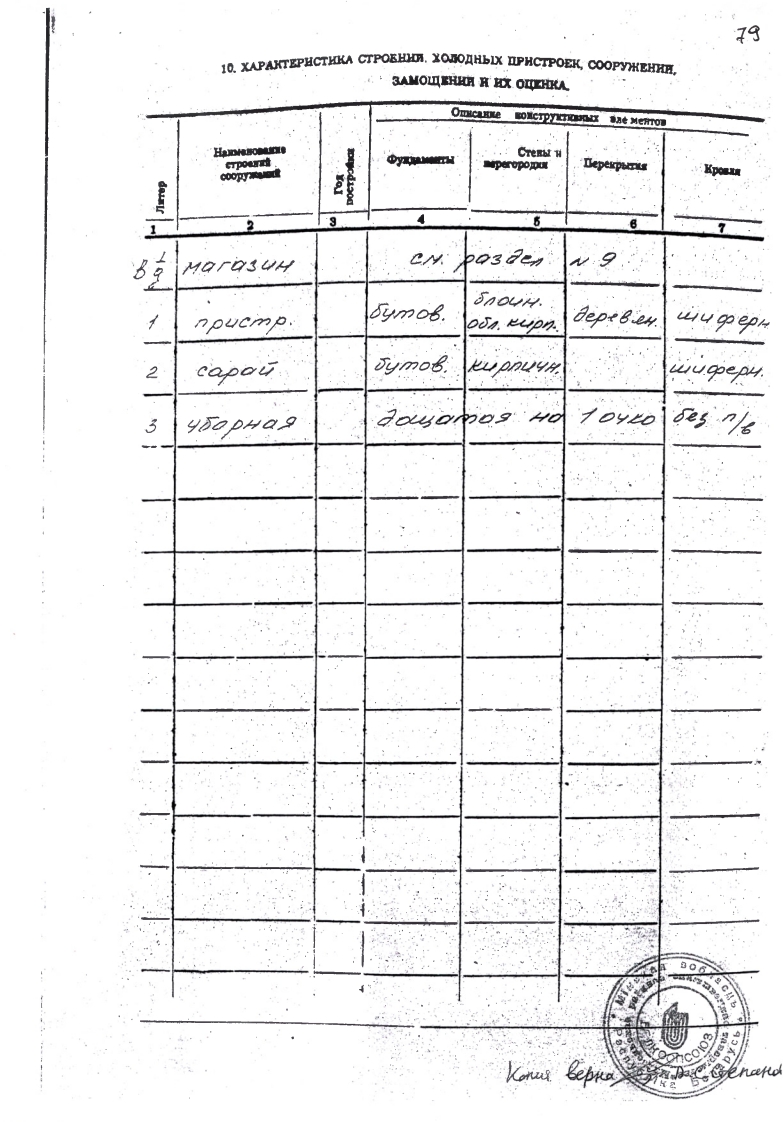 79
10. ХАРАКТЕРИСТИКА СТРОЕНИЙ. ХОЛОДНЫХ ПРИСТРОЕК, СООРУЖЕНИИ,
ЗАМОЩЕНИИ И ИХ ОЦЕНКА.
Литер
Наименование строений сооружений
Год постройки
Описание конструктивных элементов
Фундаменты
Стены и перегородки
Перекрытия
Кровля
1 2 3 4 5 6 7
магазин см. раздел № 9
1 пристр. бутов. блочн. обл. кирп. деревян. шиферн
2 сарай бутов. кирпичн. шиферн.
3 уборная дощатая на 1 очко без п/в
Мінская вобласць
Рэспубліка Беларусь
БЕЛКООПСОЮЗ
Копия верна